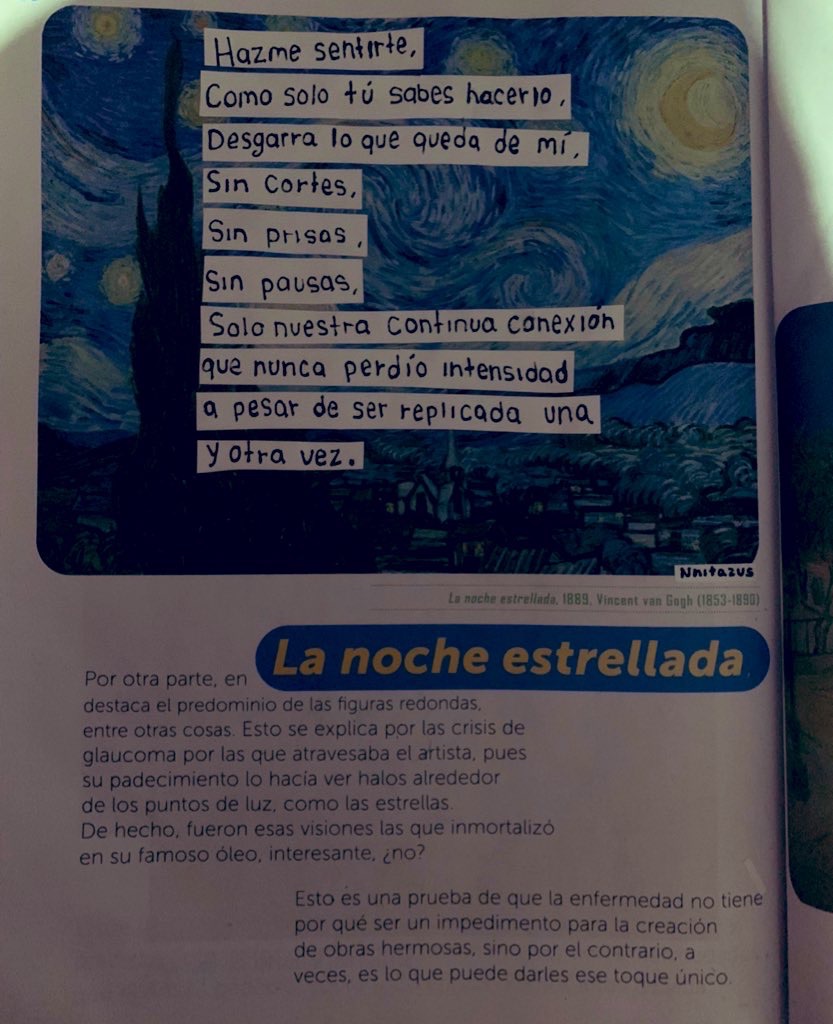 Hazme sentirte,
Como solo tú sabes hacerlo,
Desgarra lo que queda de mí,
Sin cortes,
Sin prisas,
Sin pausas,
Solo nuestra continua conexión
que nunca perdío intensidad
a pesar de ser replicada una
y otra vez.
Nnitazus
La noche estrellada, 1889, Vincent van Gogh (1853-1890)
La noche estrellada
Por otra parte, en
destaca el predominio de las figuras redondas,
entre otras cosas. Esto se explica por las crisis de
glaucoma por las que atravesaba el artista, pues
su padecimiento lo hacía ver halos alrededor
de los puntos de luz, como las estrellas.
De hecho, fueron esas visiones las que inmortalizó
en su famoso óleo, interesante, ¿no?
Esto es una prueba de que la enfermedad no tiene
por qué ser un impedimento para la creación
de obras hermosas, sino por el contrario, a
veces, es lo que puede darles ese toque único.